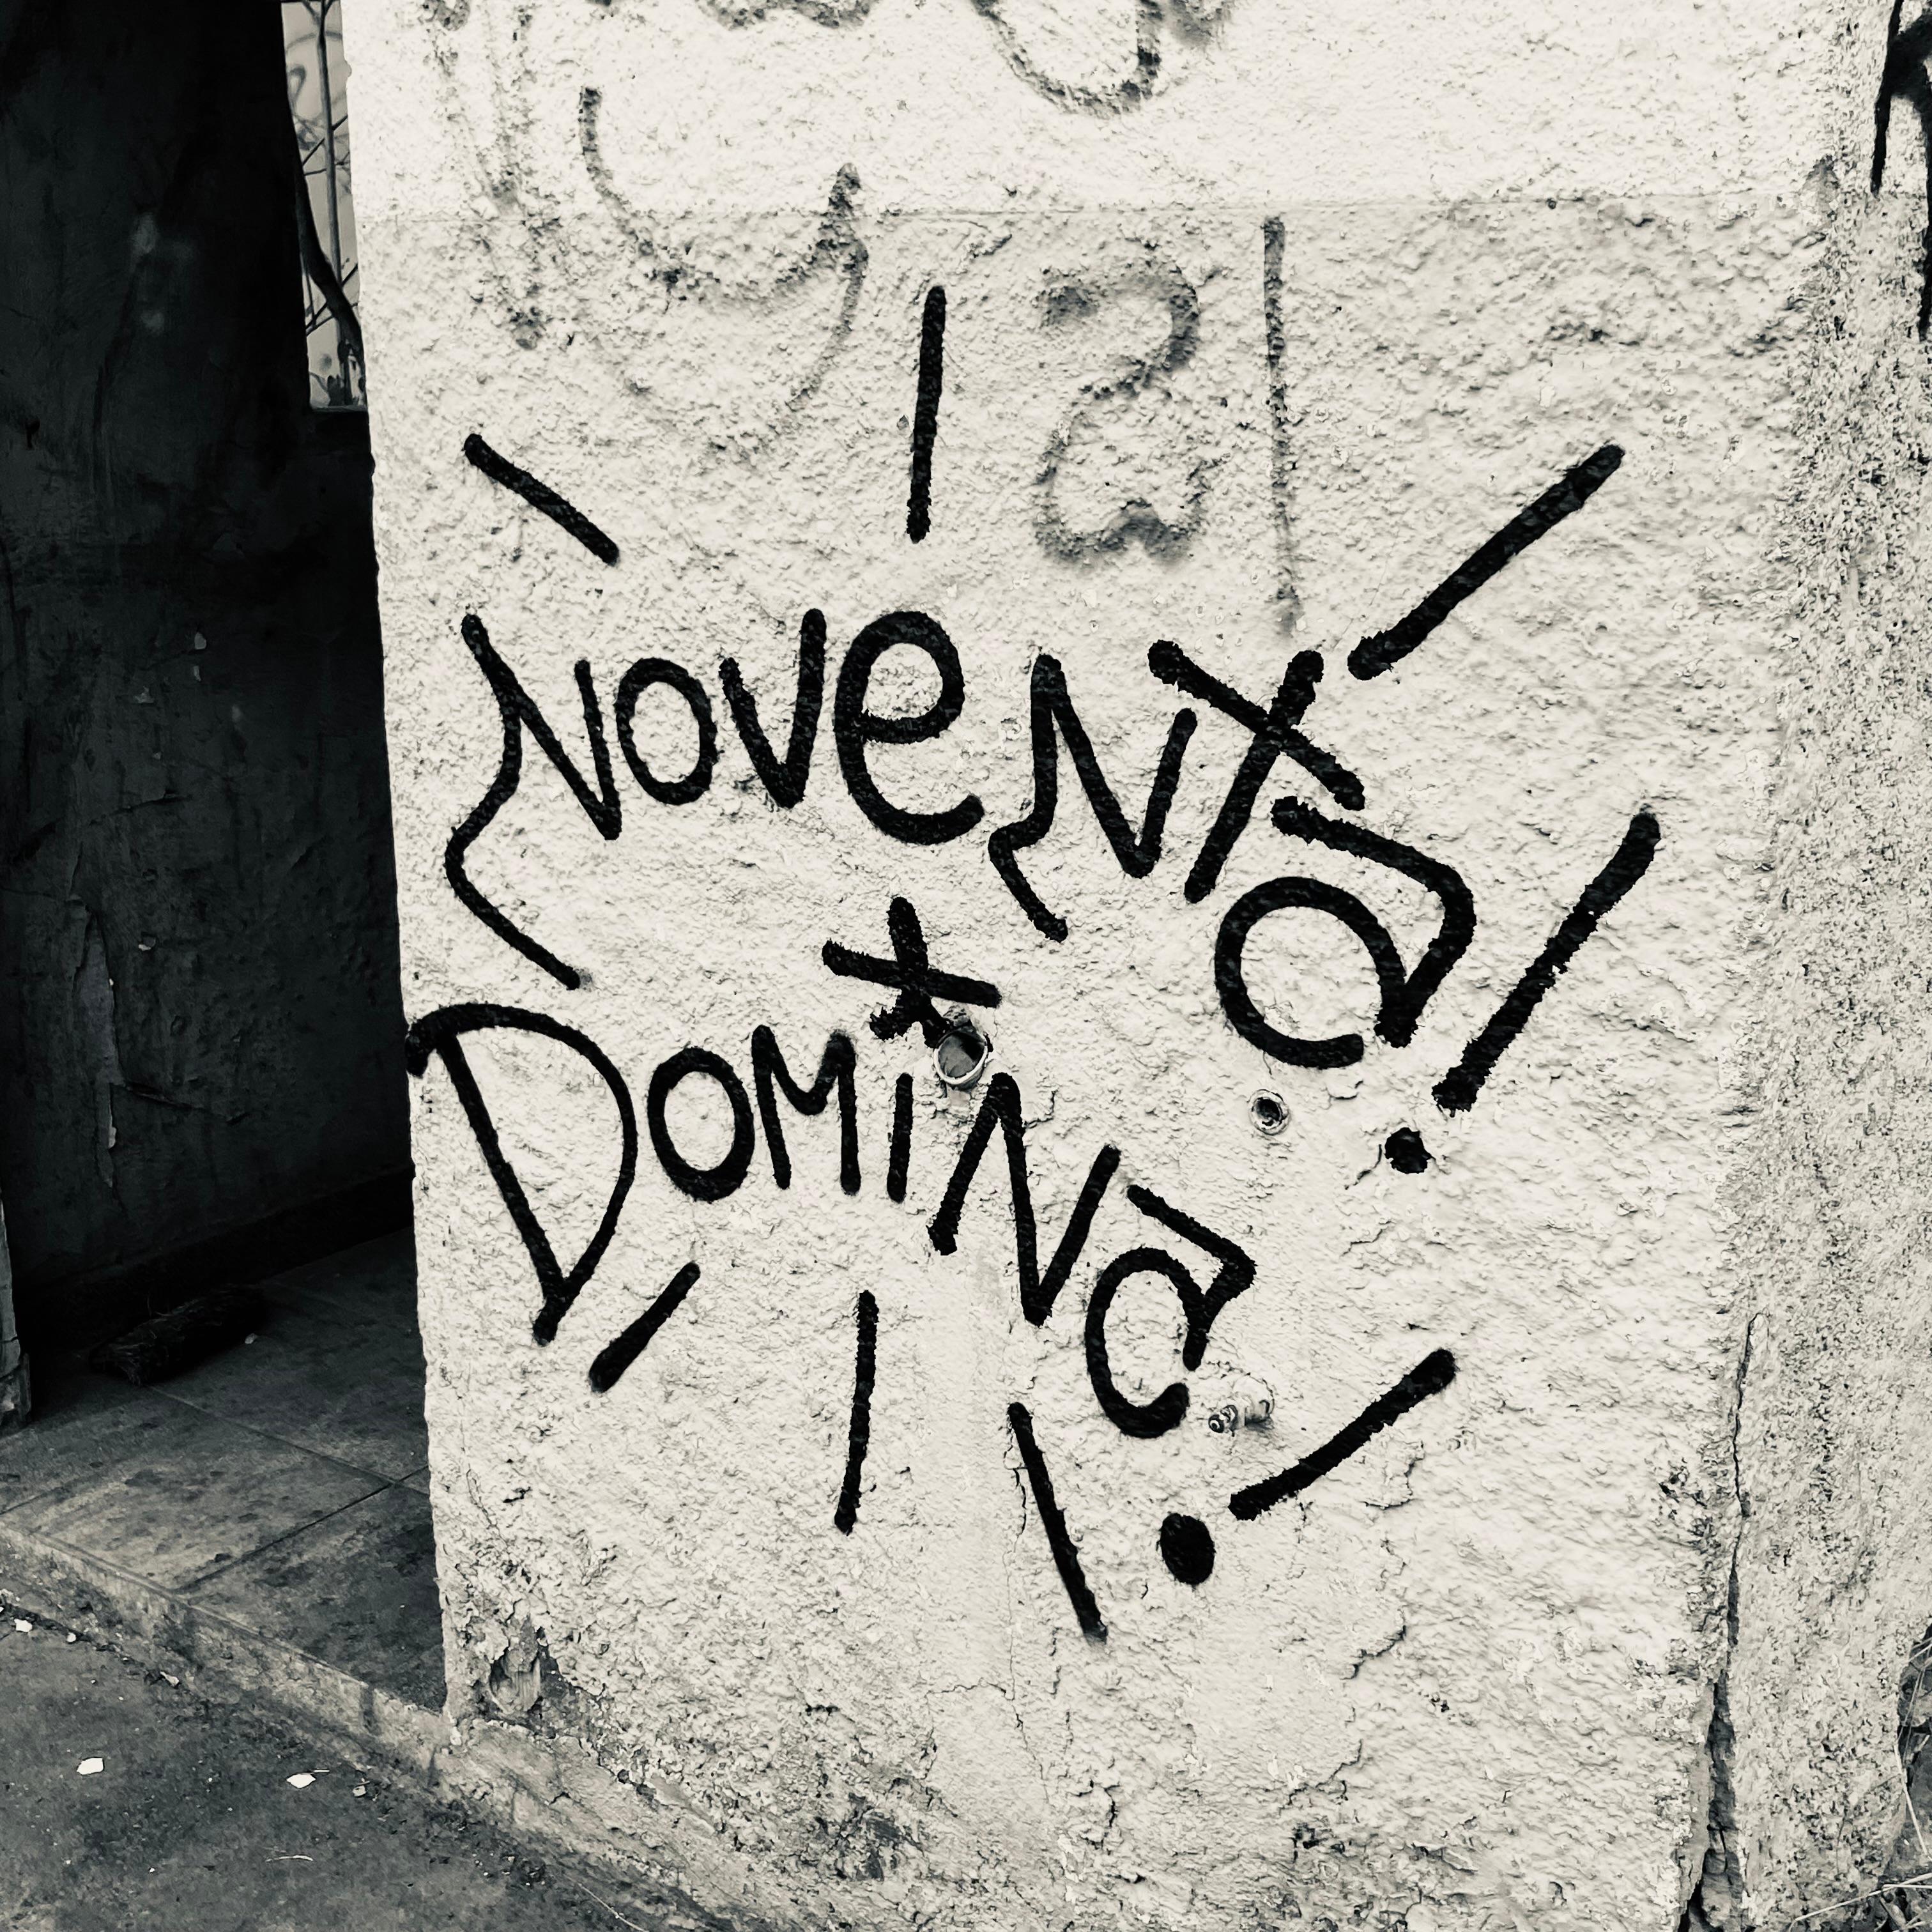 Noventa!
Domina!